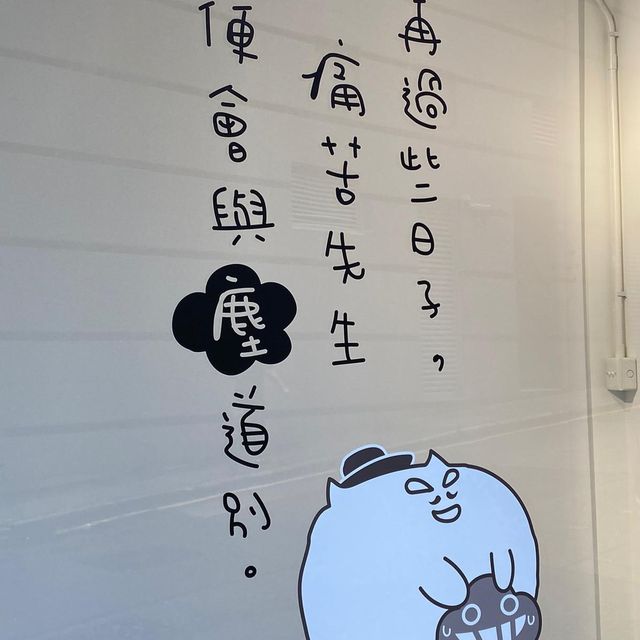 再過些日子，
痛苦先生
便會與塵道別。